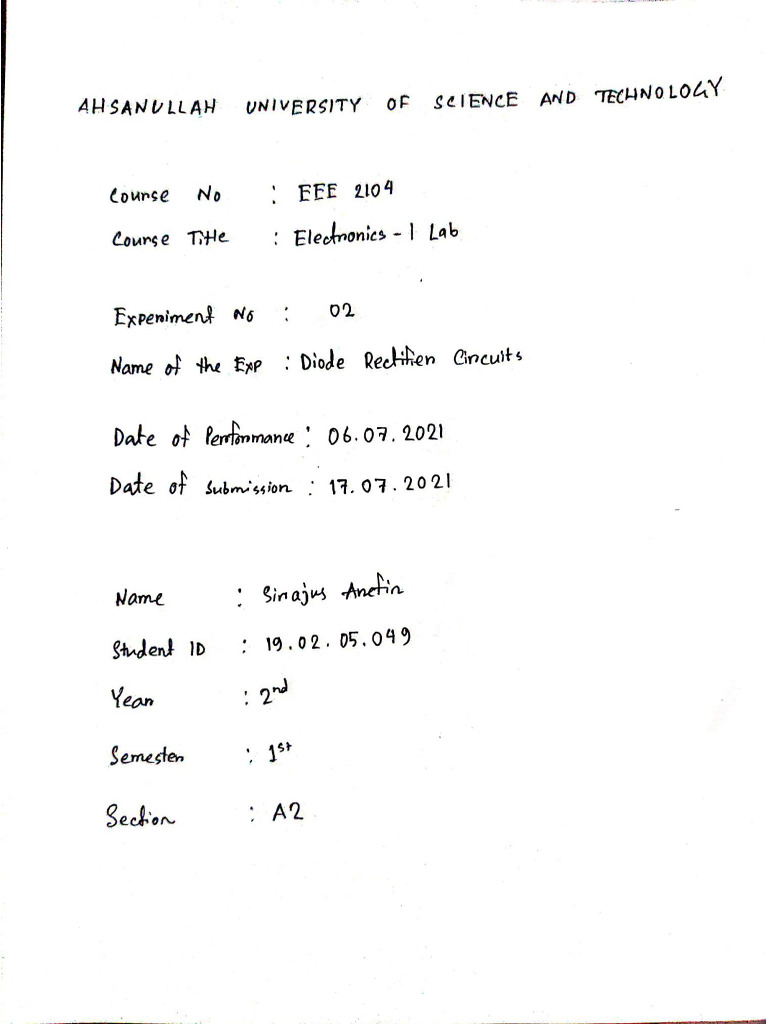 AHSANULLAH UNIVERSITY OF SCIENCE AND TECHNOLOGY
Course No : EEE 2104
Course Title : Electronics - I Lab
Experiment No : 02
Name of the Exp : Diode Rectifier Circuits
Date of Performance : 06.07.2021
Date of Submission : 17.07.2021
Name : Sirajus Arefin
Student ID : 19.02.05.049
Year : 2nd
Semester : 1st
Section : A2